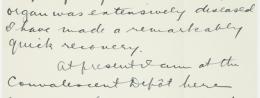 organ was extensively diseased
I have made a remarkably
quick recovery.
At present I am at the
Convalescent Depôt here